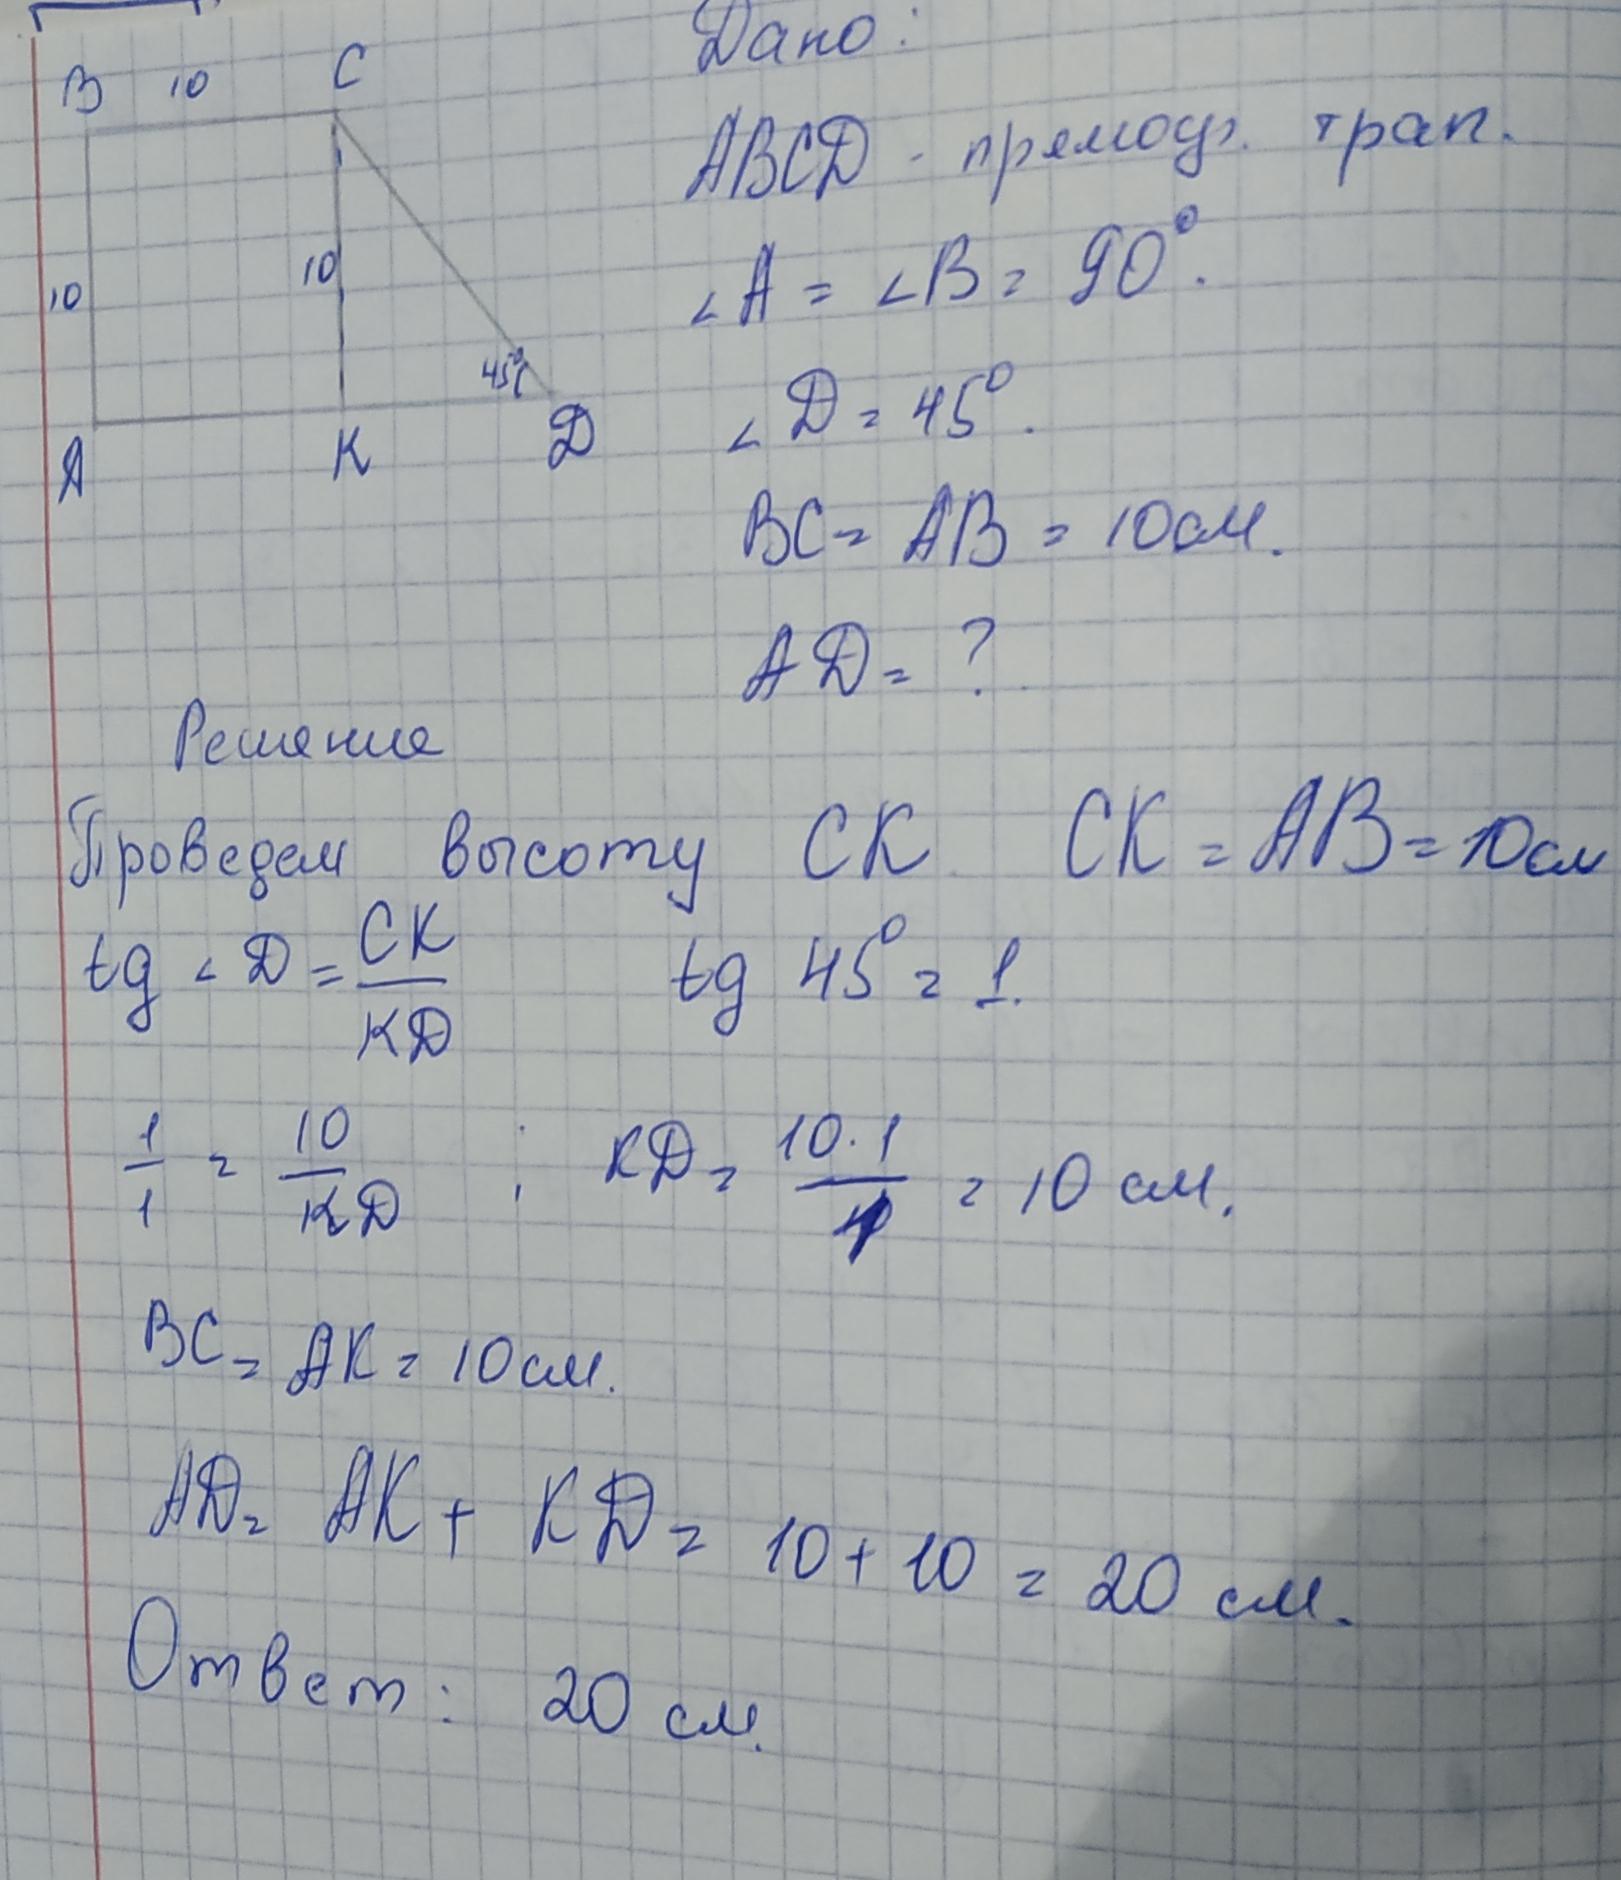 Дано:
B 10 C
ABCD - прямоуг. трап.
∠A = ∠B = 90°.
10 10
45°
∠D = 45°.
A K D
BC = AB = 10см.
AD = ?
Решение
Проведем высоту CK. CK = AB = 10см
tg ∠D = CK/KD tg 45° = 1.
1/1 = 10/KD ; KD = 10·1/1 = 10 см.
BC = AK = 10см.
AD = AK + KD = 10 + 10 = 20 см.
Ответ: 20 см.